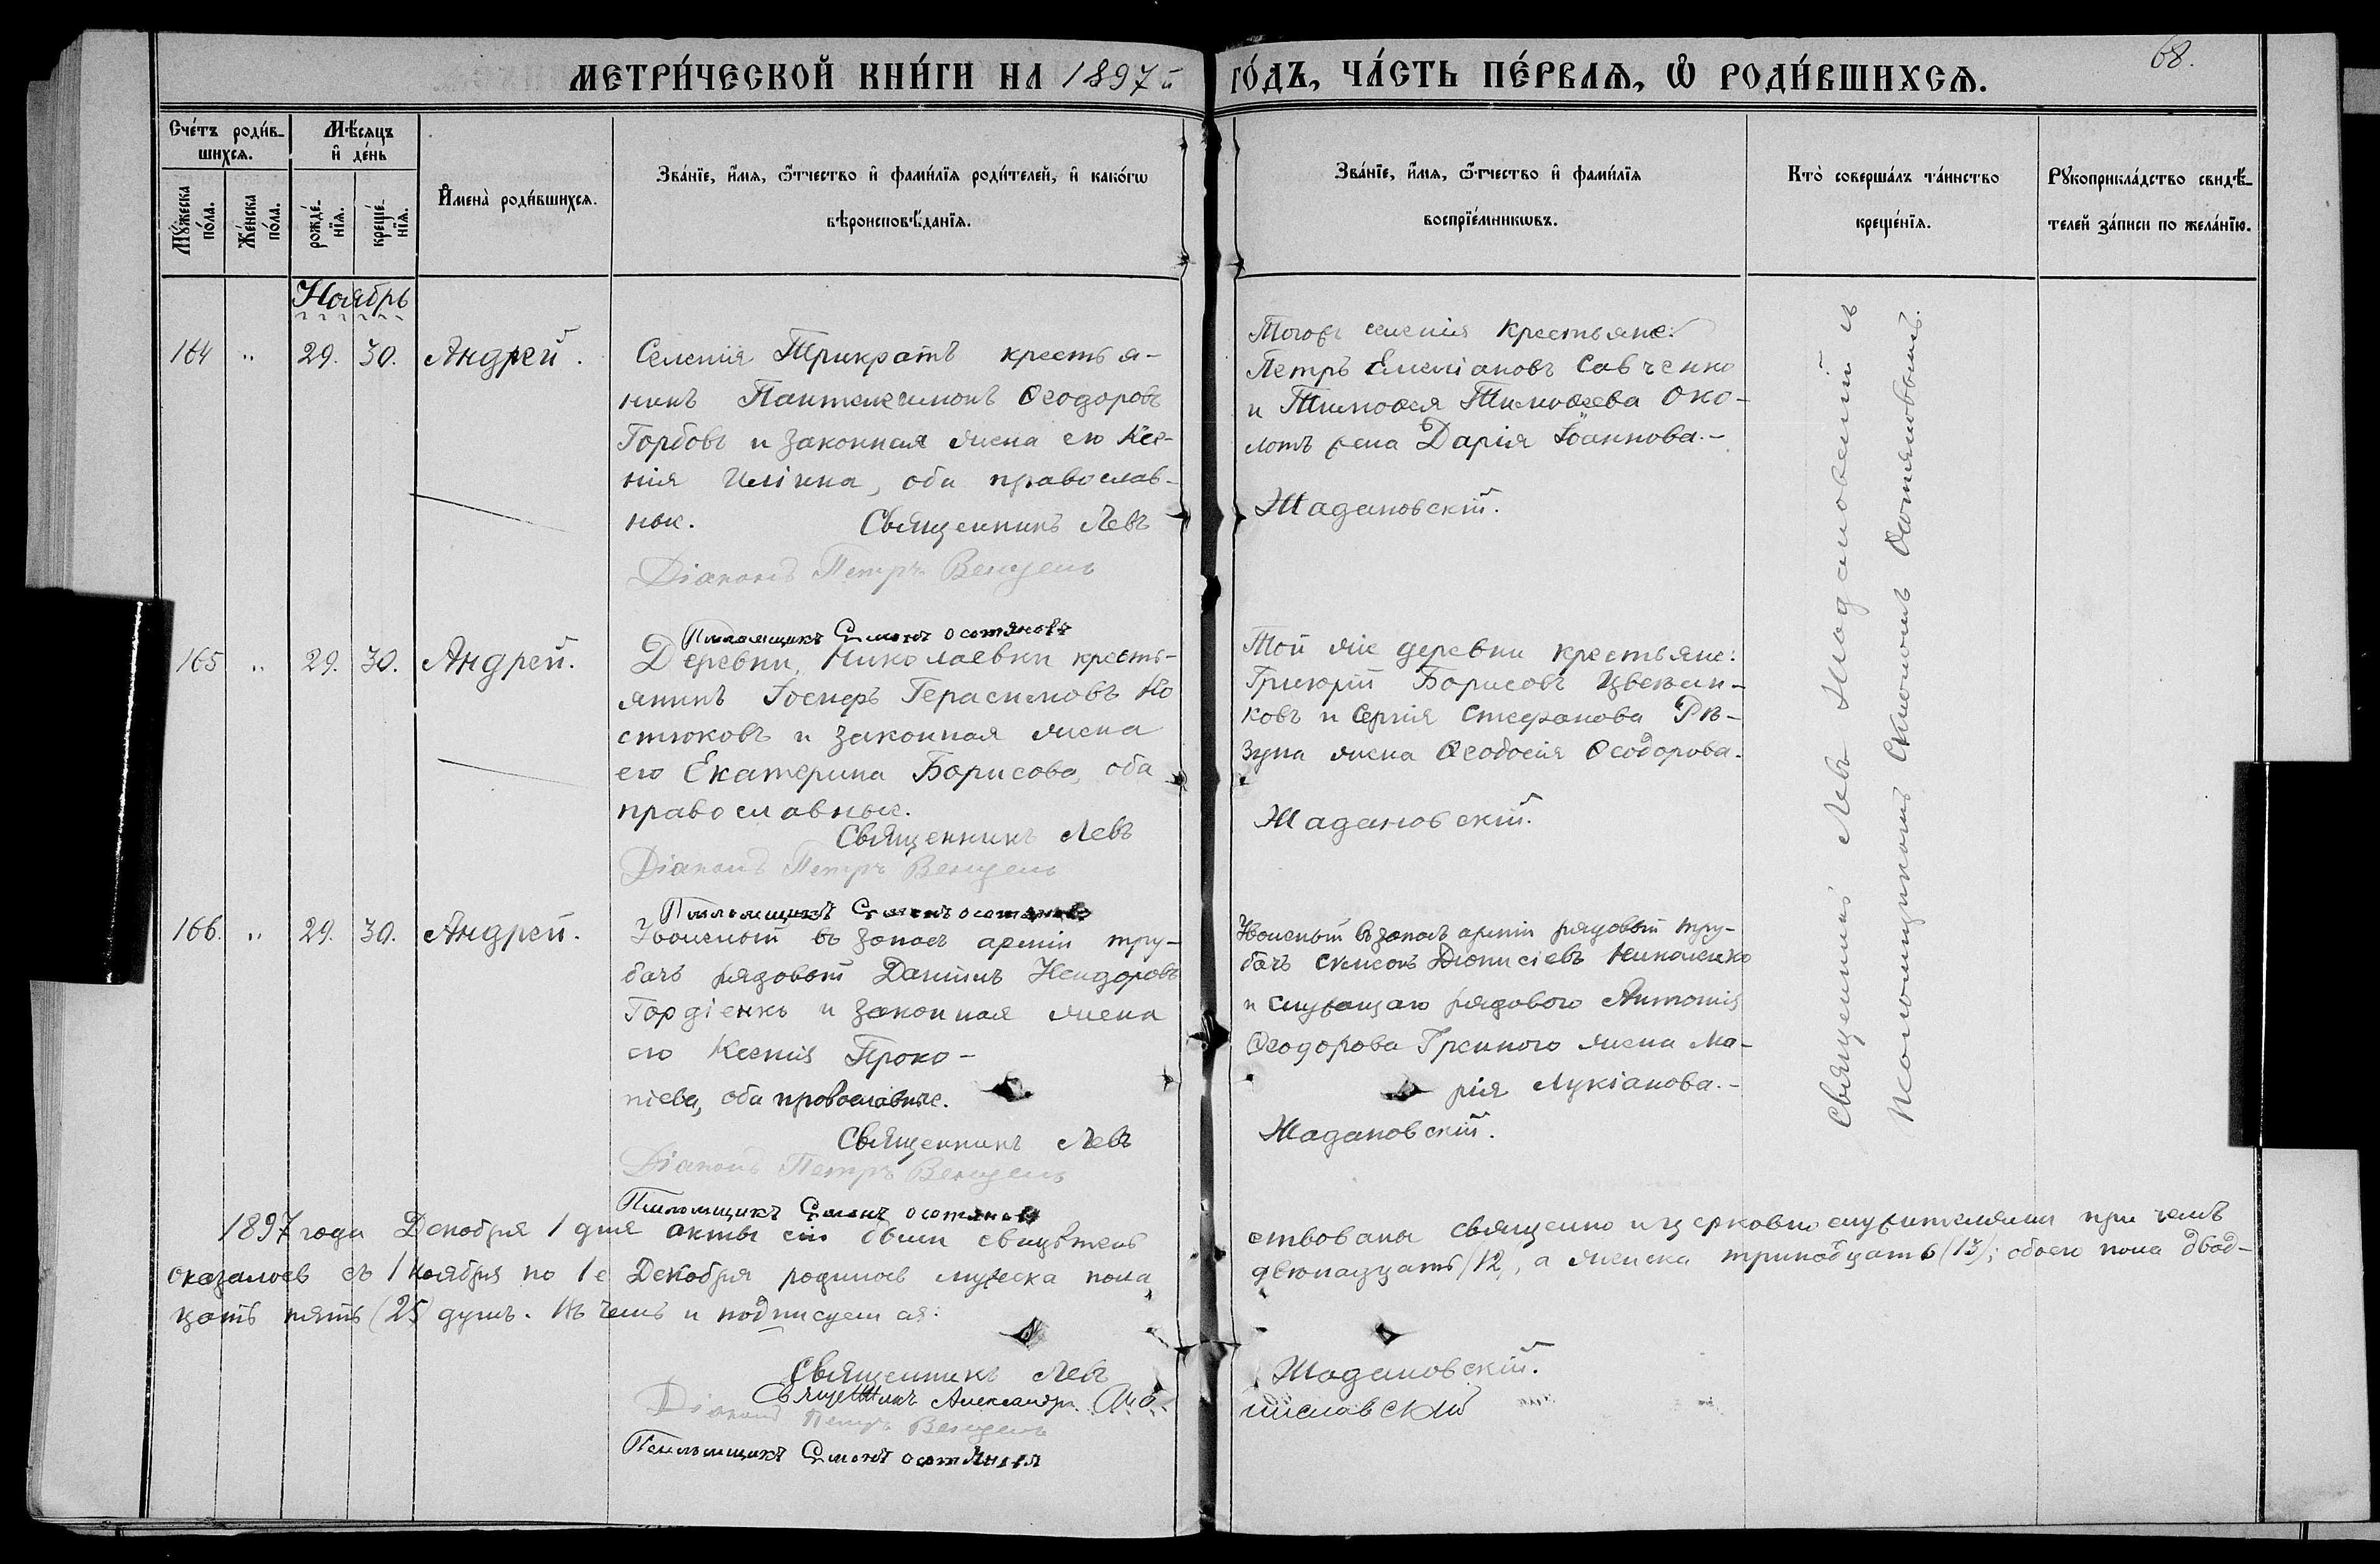 МЕТРИ́ЧЕСКОЙ КНИ́ГИ НА 1897 й ГО́ДЪ, ЧА́СТЬ ПЕ́РВАѦ, Ѡ РОДИ́ВШИХСѦ.
68.
Сче́тъ роди́в-
шихсѧ.
Мꙋ́жеска по́ла.
Же́нска по́ла.
Мѣ́сяцъ
и де́нь
рожде́-нїѧ.
креще́-нїѧ.
Имена̀ роди́вшихсѧ.
Зва́нїе, и́мѧ, ѻ́тчество и фами́лїѧ роди́телей, и како́гѡ
вѣроисповѣ́данїѧ.
Зва́нїе, и́мѧ, ѻ́тчество и фами́лїѧ
воспрїе́мникѡвъ.
Кто̀ соверша́лъ та́инство
креще́нїѧ.
Рꙋкоприкла́дство свидѣ́-
телей за́писи по жела́нїю.
Ноябрь
164 " 29. 30. Андрей.
Селенія Трикратъ крестья-
нинъ Пантелеимонъ Ѳеодоровъ
Горбовъ и законная жена его Ксе-
нія Илінна, оба православ-
ные. Священникъ Левъ
Діаконъ Петръ Венцель
Псаломщикъ Симонъ Остяновъ
Тогожъ селенія крестьяне:
Петръ Емеліановъ Савченко
и Тимоѳея Тимоѳеева Око-
лотъ жена Дарія Іоаннова.-
Жадановскій.
165 " 29. 30. Андрей.
Деревни Николаевки кресть-
янинъ Іосифъ Герасимовъ Ко
стюковъ и законная жена
его Екатерина Борисова, оба
православные.
Священникъ Левъ
Діаконъ Петръ Венцель
Псаломщикъ Симонъ Остяновъ
Той же деревни крестьяне:
Григорій Борисовъ Цветкин-
ковъ и Сергія Стефанова Рѣ-
зуна жена Ѳеодосія Ѳеодорова.
Жадановскій.
166. " 29. 30. Андрей.
Уволеный въ запасъ арміи тру-
бачъ рядовой Даніилъ Исидоровъ
Гордіенко и законная жена
его Ксенія Проко-
піева, оба православные.
Священникъ Левъ
Діаконъ Петръ Венцель
Псаломщикъ Симонъ Остяновъ
Уволеный въ запасъ арміи рядовой тру-
бачъ Симеонъ Діонисіевъ Николенко
и служащаго рядового Антонія
Ѳеодорова Гренного жена Ма-
рія Лукіанова.-
Жадановскій.
Священникъ Левъ Жадановскій съ
псаломщикомъ Симономъ Остяновымъ.
1897 года Декабря 1 дня акты сіи были свидѣтель ствованы священно и церковно служителями при чемъ
оказалось съ 1 ноября по 1е Декабря родилось мужеска пола двѣнадцать (12), а женска тринадцать (13); обоего пола двад-
цать пять (25) душъ. Въ чемъ и подписуемся:
Священникъ Левъ Жадановскій.
Священникъ Александръ
Діаконъ Петръ Венцель
Псаломщикъ Симонъ Остяновъ